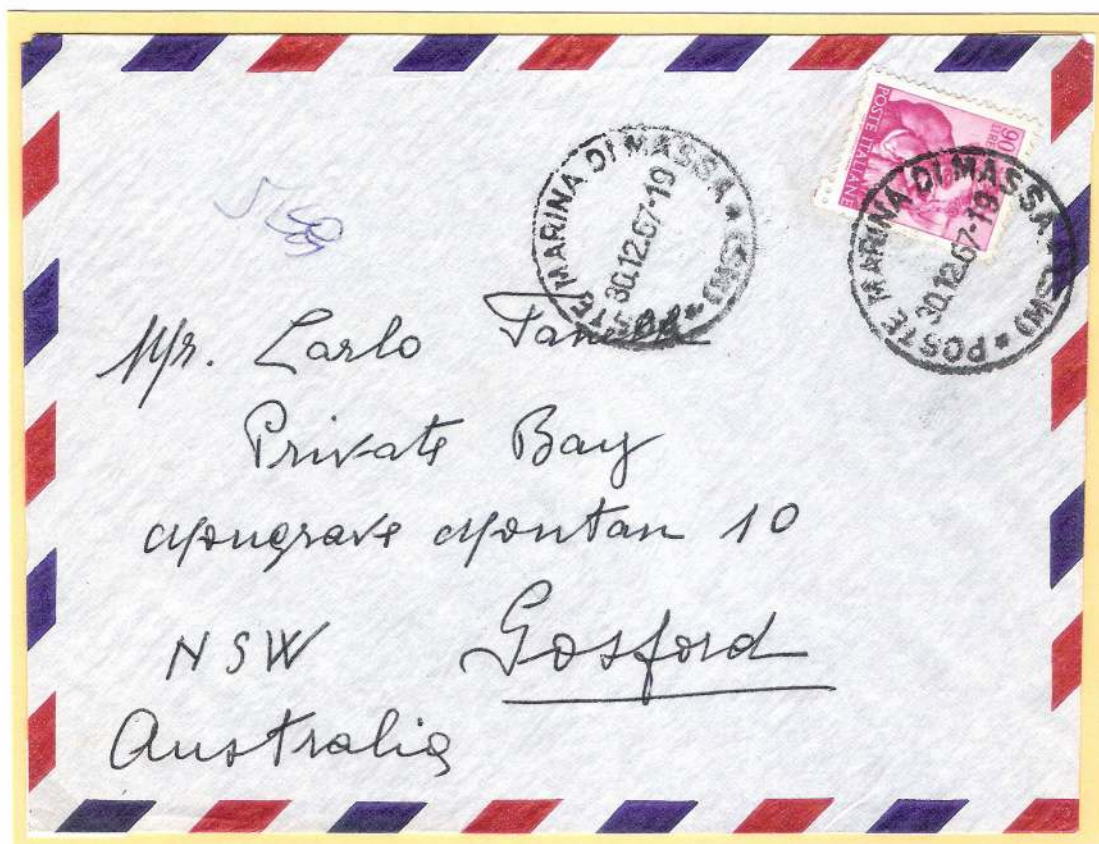 90
LIRE
POSTE ITALIANE
POSTE MARINA DI MASSA * (MS) *
30.12.67-19
POSTE MARINA DI MASSA * (MS) *
30.12.67-19
Mr. Carlo
Private Bag
Mongrave Montan 10
NSW Gosford
Australia